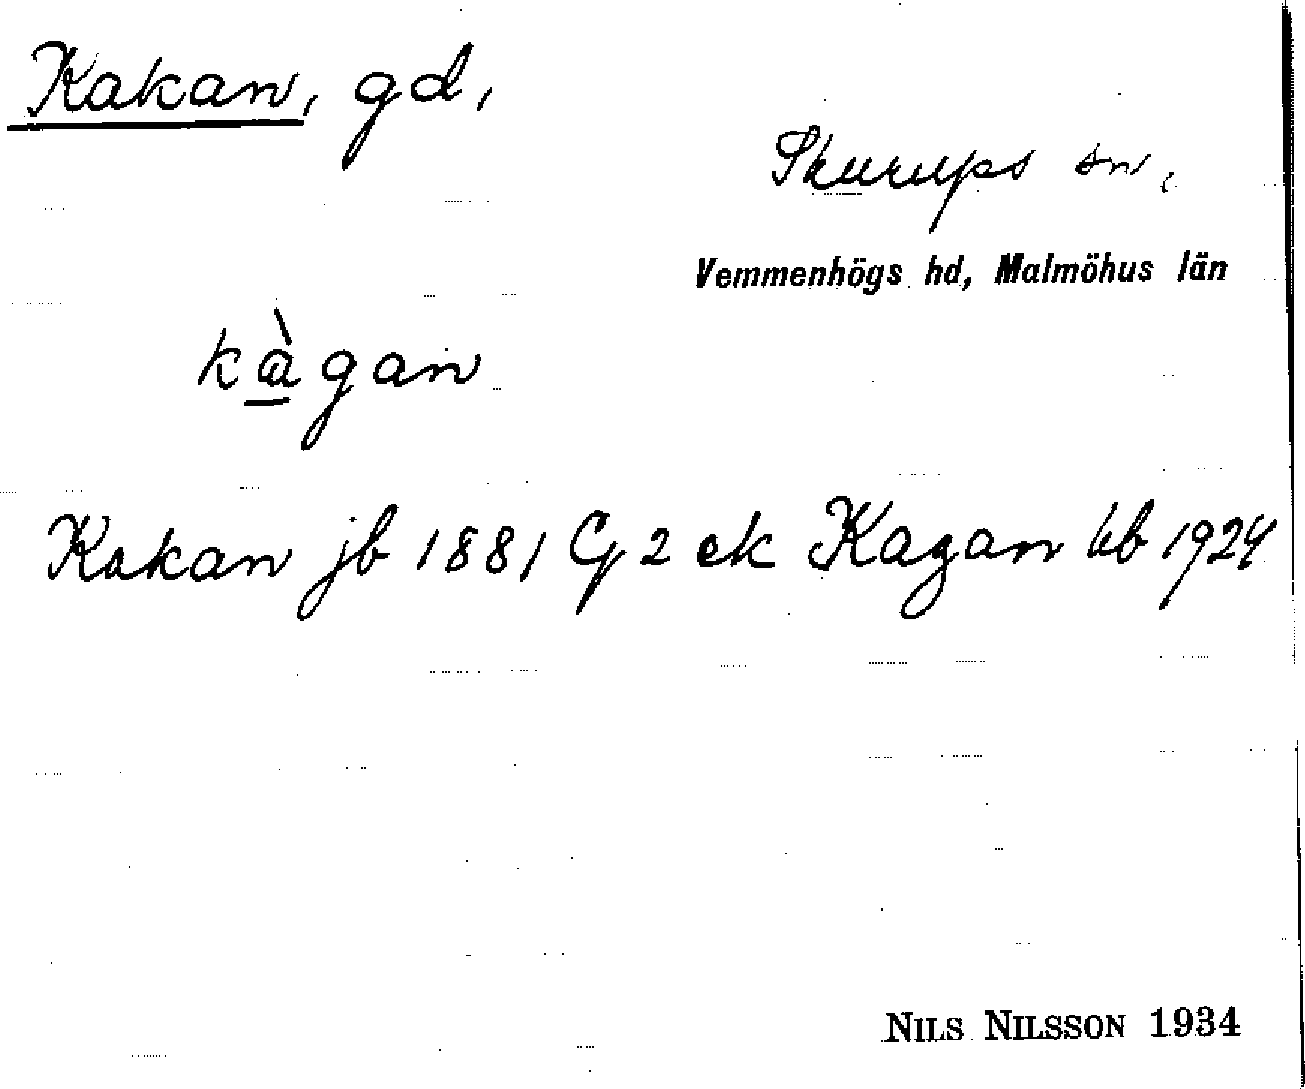 Kakan, gd,
Skurups sn,
Vemmenhögs hd, Malmöhus län
kàgan
Kakan jb 1881 G 2 ek Kagan kb 1924
NILS NILSSON 1934